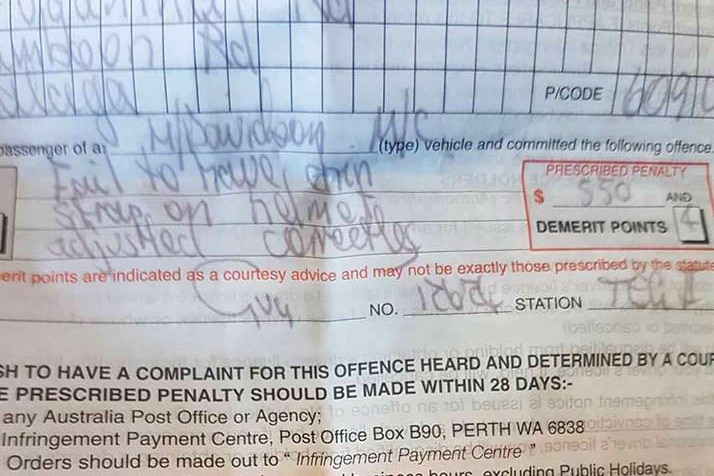 Rd
P/CODE 609
passenger of a: H/Davidson M/C (type) vehicle and committed the following offence.
Fail to have chin
strap on helmet
adjusted correctly
PRESCRIBED PENALTY
$ 550 AND
DEMERIT POINTS 4
erit points are indicated as a courtesy advice and may not be exactly those prescribed by the statute
NO. STATION TEG
SH TO HAVE A COMPLAINT FOR THIS OFFENCE HEARD AND DETERMINED BY A COUR
E PRESCRIBED PENALTY SHOULD BE MADE WITHIN 28 DAYS:-
any Australia Post Office or Agency;
Infringement Payment Centre, Post Office Box B90, PERTH WA 6838
Orders should be made out to “ Infringement Payment Centre ”
hours, excluding Public Holidays.